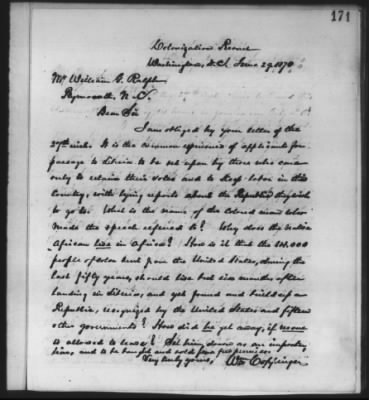 171
Colonization Rooms
Washington, D.C. June 29, 1870
Mr William G. Ralph
Plymouth, N. C.
Dear Sir
I am obliged by your letter of the
27th inst. It is the common experience of applicants for
passage to Liberia to be set upon by those who care
only to retain their votes and to keep labor in this
Country, with lying reports about the Republic they wish
to go to. What is the name of the Colored man who
made the speech referred to? Why does the native
African live in Africa? How is it that the 14.000
people of color sent from the United States, during the
last fifty years, should live but six months after
landing in Liberia, and yet found and build up a
Republic, recognized by the United States and fifteen
other governments? How did he get away, if no one
is allowed to leave? Set him down as an imposter,
liar, and to be bought and sold for a few pennies.
Very truly yours, Wm Coppinger